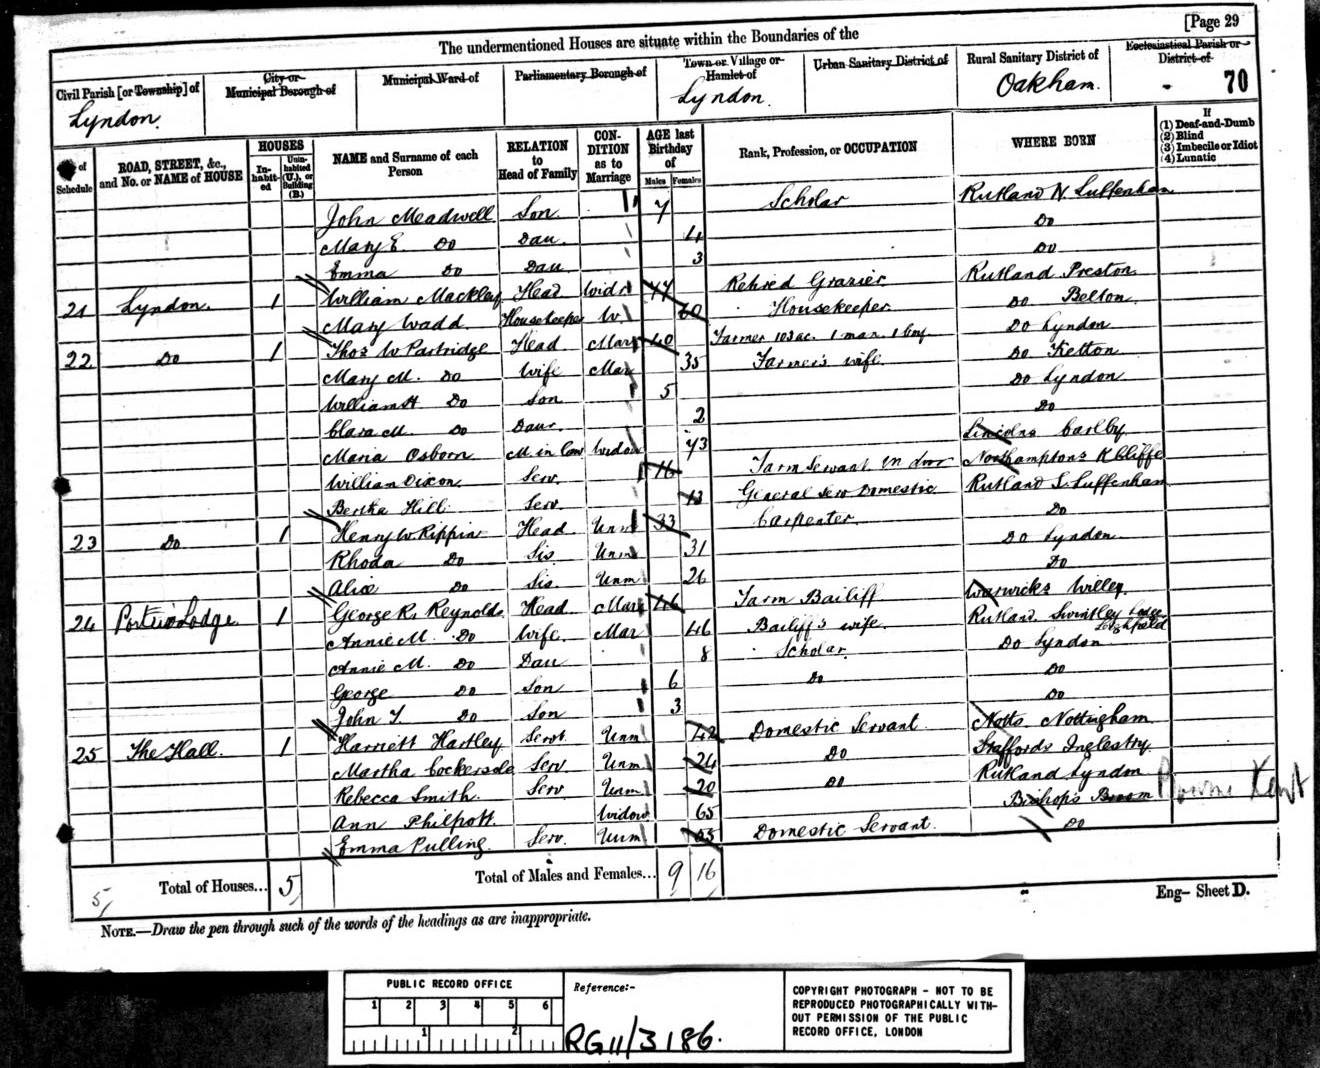 [Page 29
The undermentioned Houses are situate within the Boundaries of the
Civil Parish [or Township] of
Lyndon
City or Municipal Borough of
Municipal Ward of
Parliamentary Borough of
Town or Village or Hamlet of
Lyndon
Urban Sanitary District of
Rural Sanitary District of
Oakham.
Ecclesiastical Parish or District of
70
of Schedule
ROAD, STREET, &c., and No. or NAME of HOUSE
HOUSES
In-habit-ed
Unin-habited (U.), or Building (B.)
NAME and Surname of each Person
RELATION to Head of Family
CON-DITION as to Marriage
AGE last Birthday of
Males Females
Rank, Profession, or OCCUPATION
WHERE BORN
If
(1) Deaf-and-Dumb
(2) Blind
(3) Imbecile or Idiot
(4) Lunatic
John Meadwell Son 7 Scholar Rutland N. Luffenham
Mary E. Do Dau. 4 Do
Emma Do Dau 3 Do
21 Lyndon. 1 William Mackley Head Widr 77 Retired Grazier Rutland Preston
Mary Wadd Housekeeper W. 60 Housekeeper Do Belton
22 Do 1 Thos W Partridge Head Mar 40 Farmer 103 ac. 1 man 1 boy Do Lyndon
Mary M. Do Wife Mar 35 Farmer's wife Do Ketton
William H Do Son 5 Do Lyndon
Clara M. Do Daur. 2 Do
Maria Osborn M in law Widow 73 Lincolns Carlby
William Dixon Serv. 16 Farm Servant in door Northamptons K Cliffe
Bertha Hill Serv. 13 General Serv Domestic Rutland S. Luffenham
23 Do 1 Henry W. Rippin Head Unm 33 Carpenter Do
Rhoda Do Sis Unm 31 Do Lyndon
Alice Do Sis. Unm 26 Do
24 Lodge 1 George R. Reynolds Head Mar 46 Farm Bailiff Warwicks Willey
Annie M. Do Wife. Mar 46 Bailiff's wife Rutland
Annie M. Do Dau 8 Scholar Do Lyndon
George Do Son 6 Do Do
John T. Do Son 3 Do
25 The Hall. 1 Harriett Hartley Servt. Unm 42 Domestic Servant Notts Nottingham
Martha Serv. Unm 24 Do Staffords Inglestry
Rebecca Smith Serv. Unm 20 Do Rutland Lyndon
Ann Philpott. Widow 65 Bishops Kent
Emma Pulling. Serv. Unm Domestic Servant. Do
5 Total of Houses... 5 Total of Males and Females... 9 16
Eng— Sheet D.
NOTE.—Draw the pen through such of the words of the headings as are inappropriate.
PUBLIC RECORD OFFICE
1 2 3 4 5 6
1 2
Reference:-
RG11/3186.
COPYRIGHT PHOTOGRAPH – NOT TO BE
REPRODUCED PHOTOGRAPHICALLY WITH-
OUT PERMISSION OF THE PUBLIC
RECORD OFFICE, LONDON